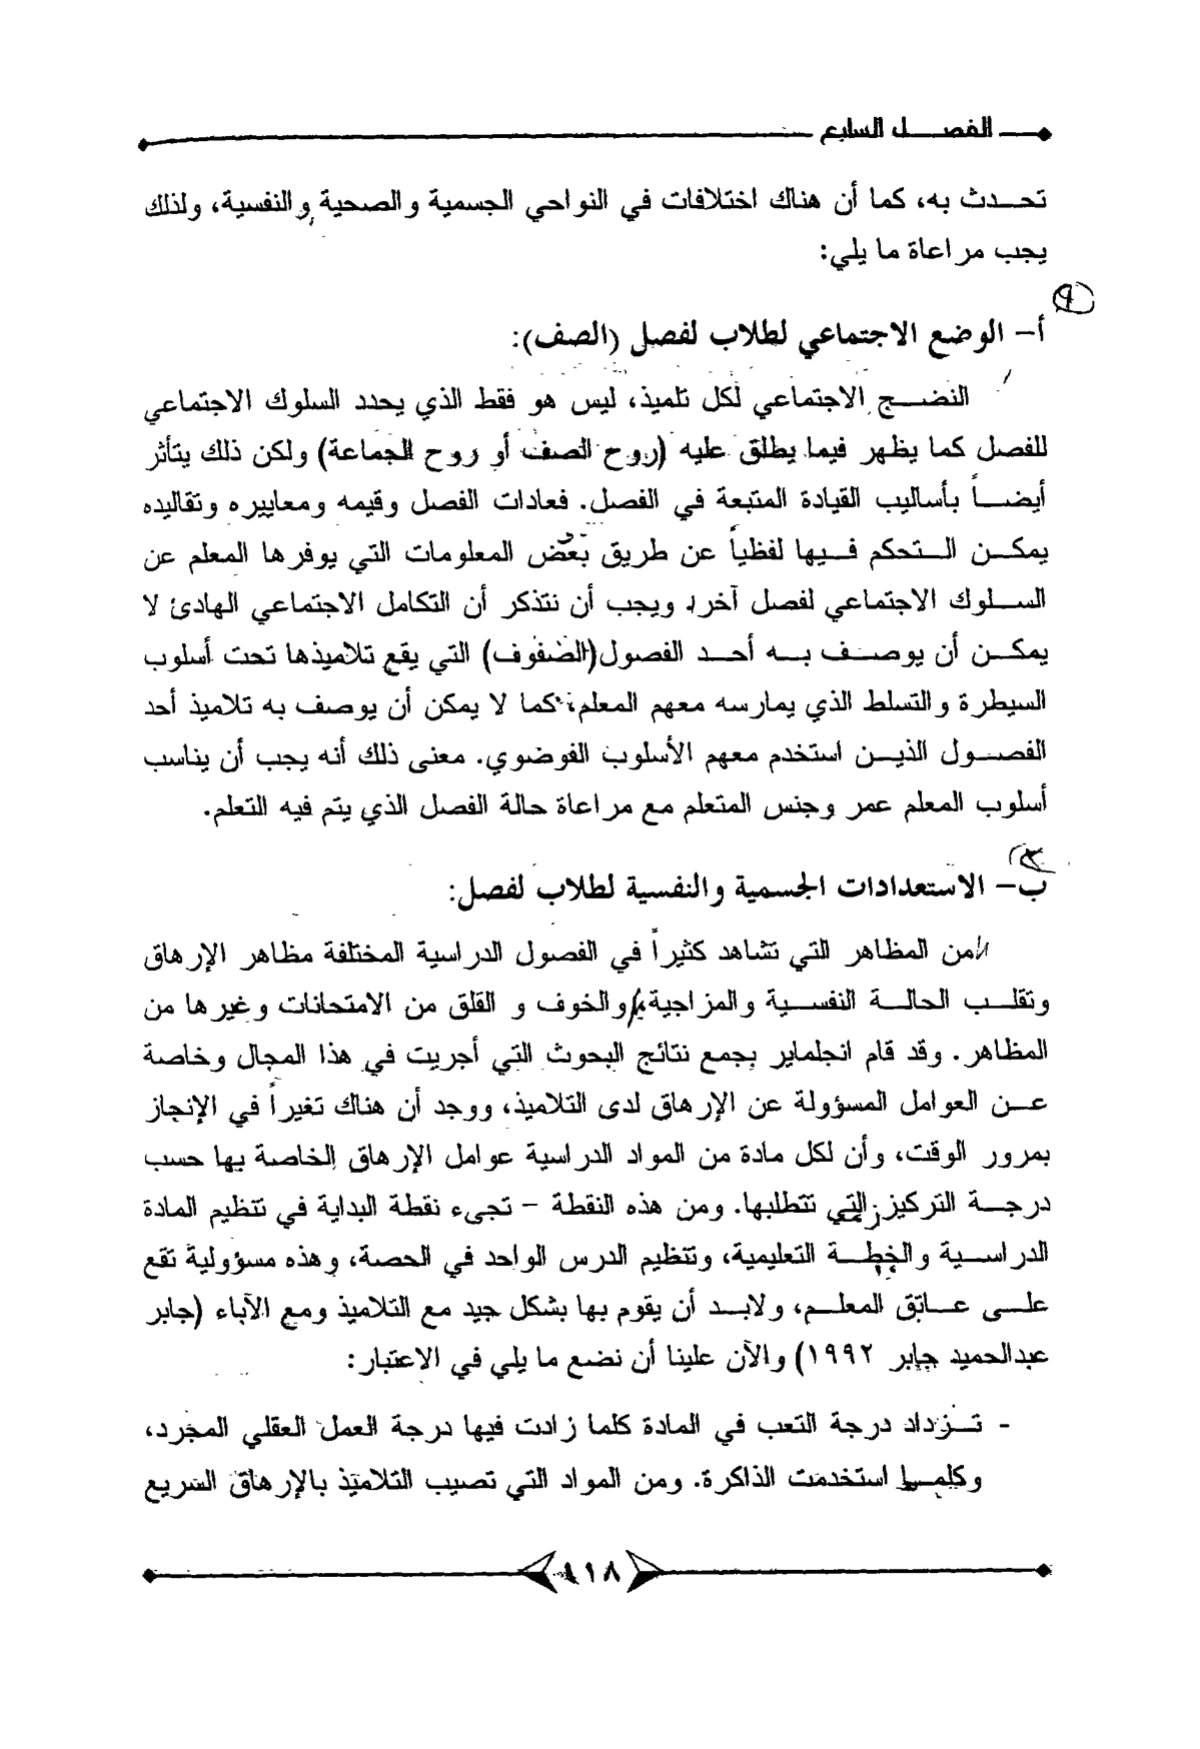 الفصل السابع
تحدث به، كما أن هناك اختلافات في النواحي الجسمية والصحية والنفسية، ولذلك
يجب مراعاة ما يلي:
أ- الوضع الاجتماعي لطلاب لفصل (الصف):
النضج الاجتماعي لكل تلميذ، ليس هو فقط الذي يحدد السلوك الاجتماعي
للفصل كما يظهر فيما يطلق عليه (روح الصف أو روح الجماعة) ولكن ذلك يتأثر
أيضاً بأساليب القيادة المتبعة في الفصل. فعادات الفصل وقيمه ومعاييره وتقاليده
يمكن التحكم فيها لفظياً عن طريق بعض المعلومات التي يوفرها المعلم عن
السلوك الاجتماعي لفصل آخر، ويجب أن نتذكر أن التكامل الاجتماعي الهادئ لا
يمكن أن يوصف به أحد الفصول(الصفوف) التي يقع تلاميذها تحت أسلوب
السيطرة والتسلط الذي يمارسه معهم المعلم، كما لا يمكن أن يوصف به تلاميذ أحد
الفصول الذين استخدم معهم الأسلوب الفوضوي. معنى ذلك أنه يجب أن يناسب
أسلوب المعلم عمر وجنس المتعلم مع مراعاة حالة الفصل الذي يتم فيه التعلم.
ب- الاستعدادات الجسمية والنفسية لطلاب لفصل:
من المظاهر التي تشاهد كثيراً في الفصول الدراسية المختلفة مظاهر الإرهاق
وتقلب الحالة النفسية والمزاجية، والخوف و القلق من الامتحانات وغيرها من
المظاهر. وقد قام انجلماير بجمع نتائج البحوث التي أجريت في هذا المجال وخاصة
عن العوامل المسؤولة عن الإرهاق لدى التلاميذ، ووجد أن هناك تغيراً في الإنجاز
بمرور الوقت، وأن لكل مادة من المواد الدراسية عوامل الإرهاق الخاصة بها حسب
درجة التركيز التي تتطلبها. ومن هذه النقطة - تجيء نقطة البداية في تنظيم المادة
الدراسية والخطة التعليمية، وتنظيم الدرس الواحد في الحصة، وهذه مسؤولية تقع
على عاتق المعلم، ولابد أن يقوم بها بشكل جيد مع التلاميذ ومع الآباء (جابر
عبدالحميد جابر ١٩٩٢) والآن علينا أن نضع ما يلي في الاعتبار:
- تزداد درجة التعب في المادة كلما زادت فيها درجة العمل العقلي المجرد،
وكلما استخدمت الذاكرة. ومن المواد التي تصيب التلاميذ بالإرهاق السريع
١١٨